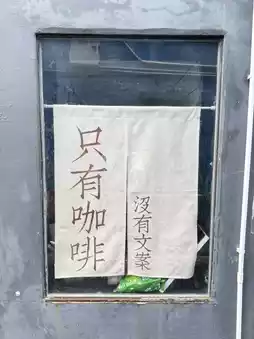 只有咖啡
沒有文案